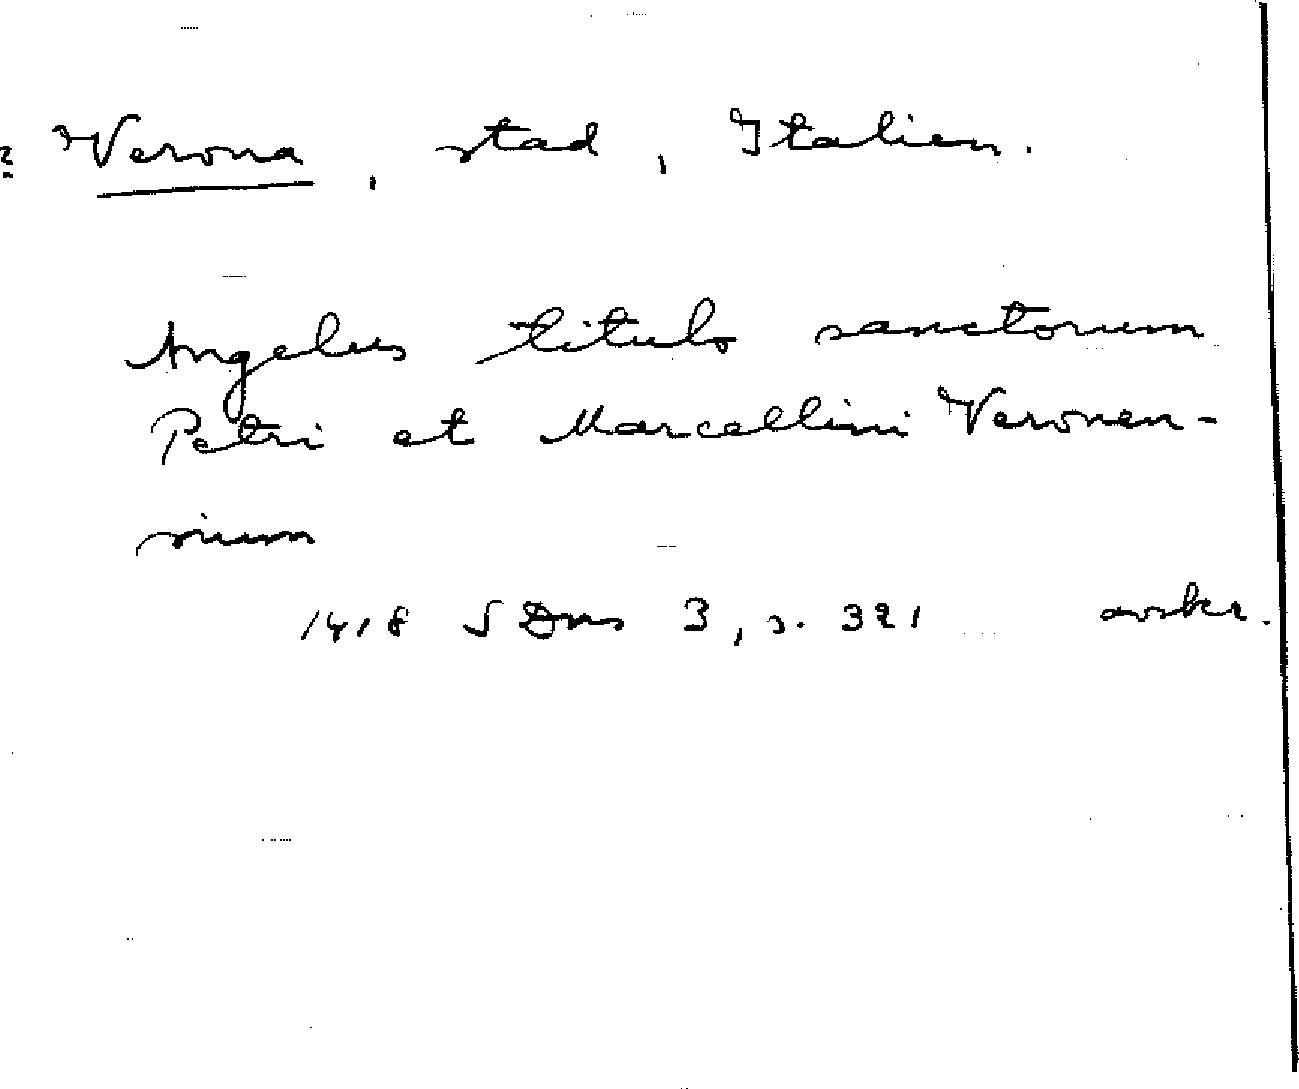 Verona, stad, Italien.
Angelus titulo sanctorum
Petri et Marcellini Veronen-
sium
1418 SDns 3, s. 321 avskr.